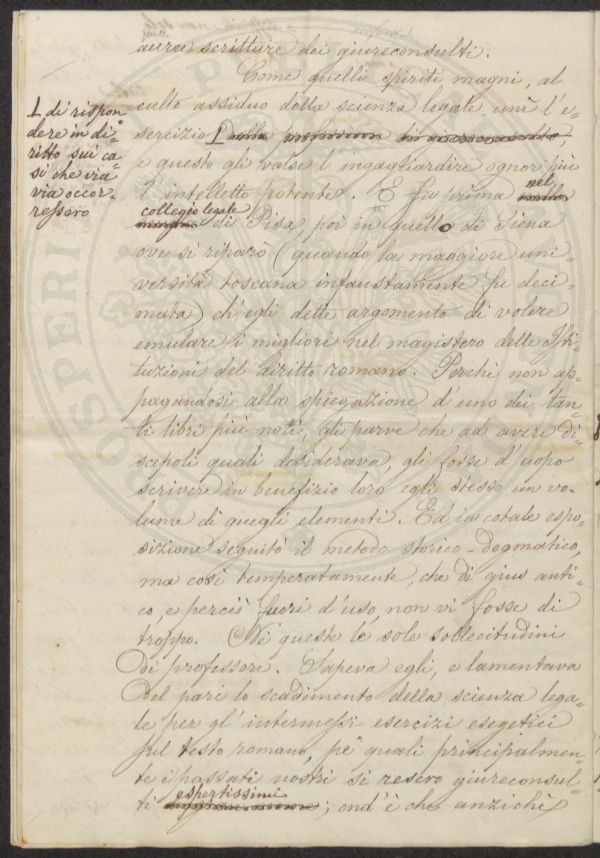 auree scritture dei giureconsulti.
Come quelli spiriti magni, al
culto assiduo della scienza legale unì l'e=
sercizio
L di rispon=
dere in di=
ritto sui ca=
si che via
via occor=
ressero
e questo gli valse l'ingagliardire ognor più
l'intelletto potente. E fu prima nel
collegio legale
di Pisa, poi in quello di Siena
ove si riparò (quando la maggiore uni=
versità toscana infaustamente fu deci=
mata) ch'egli dette argomento di volere
emulare i migliori nel magistero delle Isti=
tuzioni del diritto romano. Perchè non ap=
pagandosi alla spiegazione d'uno dei tan=
ti libri più noti, gli parve che ad avere di=
scepoli quali desiderava, gli fosse d'uopo
scrivere in benefizio loro egli stesso un vo=
lume di quegli elementi. Ed in cotale espo=
sizione seguitò il metodo storico-dogmatico,
ma così temperatamente, che di gius anti=
co, e perciò fuori d'uso, non vi fosse di
troppo. Nè queste le sole sollecitudini
di professore. Sapeva egli, e lamentava
del pari lo scadimento della scienza lega=
le per gl'intermessi esercizi esegetici
sul testo romano, pe' quali principalmen=
te i passati nostri si resero giureconsul=
ti espertissimi; ond'è che anzichè
PROSPERI